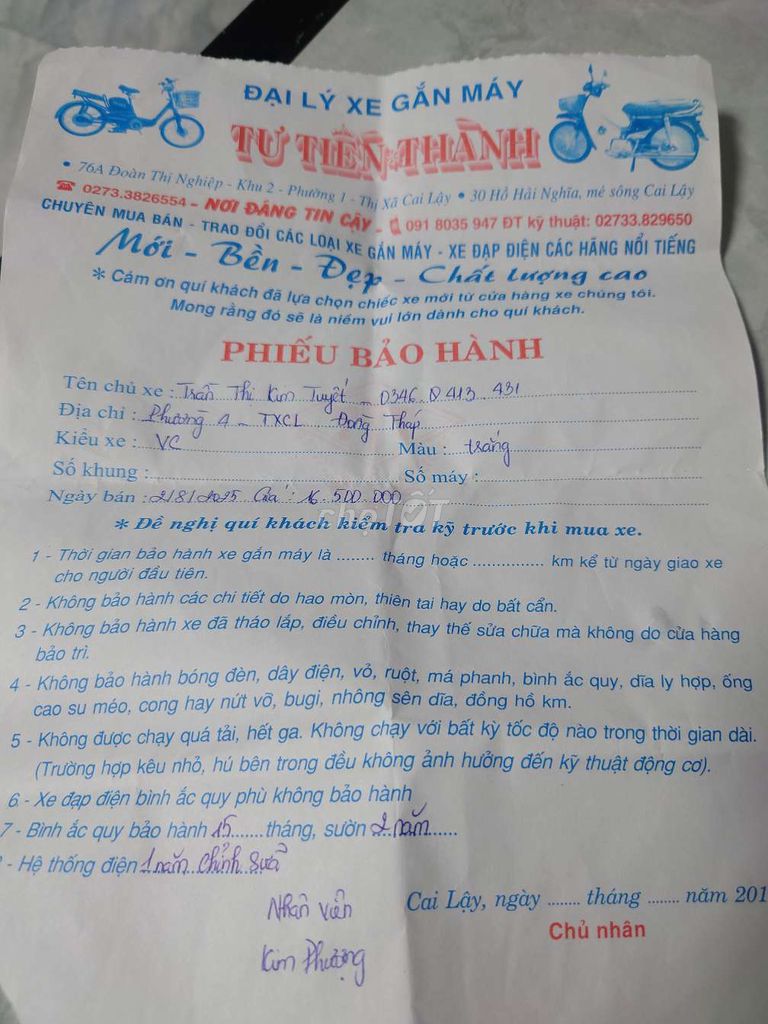 ĐẠI LÝ XE GẮN MÁY
TƯ TIẾN THÀNH
• 76A Đoàn Thị Nghiệp - Khu 2 - Phường 1 - Thị Xã Cai Lậy • 30 Hồ Hải Nghĩa, mé sông Cai Lậy
☎ 0273.3826554 - NƠI ĐÁNG TIN CẬY - 091 8035 947 ĐT kỹ thuật: 02733.829650
CHUYÊN MUA BÁN - TRAO ĐỔI CÁC LOẠI XE GẮN MÁY - XE ĐẠP ĐIỆN CÁC HÃNG NỔI TIẾNG
Mới - Bền - Đẹp - Chất lượng cao
* Cám ơn quí khách đã lựa chọn chiếc xe mới từ cửa hàng xe chúng tôi.
Mong rằng đó sẽ là niềm vui lớn dành cho quí khách.
PHIẾU BẢO HÀNH
Tên chủ xe : Trần Thị Kim Tuyết - 0346 8 413 431
Địa chỉ : Phường 4 - TXCL Đồng Tháp
Kiểu xe : VC Màu : trắng
Số khung : Số máy :
Ngày bán : 2/8/2025 Giá : 16.500.000
chợTỐT
* Đề nghị quí khách kiểm tra kỹ trước khi mua xe.
1 - Thời gian bảo hành xe gắn máy là ........ tháng hoặc ............... km kể từ ngày giao xe
cho người đầu tiên.
2 - Không bảo hành các chi tiết do hao mòn, thiên tai hay do bất cẩn.
3 - Không bảo hành xe đã tháo lắp, điều chỉnh, thay thế sửa chữa mà không do cửa hàng
bảo trì.
4 - Không bảo hành bóng đèn, dây điện, vỏ, ruột, má phanh, bình ắc quy, dĩa ly hợp, ống
cao su méo, cong hay nứt vỡ, bugi, nhông sên dĩa, đồng hồ km.
5 - Không được chạy quá tải, hết ga. Không chạy với bất kỳ tốc độ nào trong thời gian dài.
(Trường hợp kêu nhỏ, hú bên trong đều không ảnh hưởng đến kỹ thuật động cơ).
6 - Xe đạp điện bình ắc quy phù không bảo hành
7 - Bình ắc quy bảo hành 15 ...... tháng, sườn 2 năm ......
- Hệ thống điện 1 năm chỉnh sửa
Nhân viên
Kim Phượng
Cai Lậy, ngày ........ tháng ........ năm 201
Chủ nhân